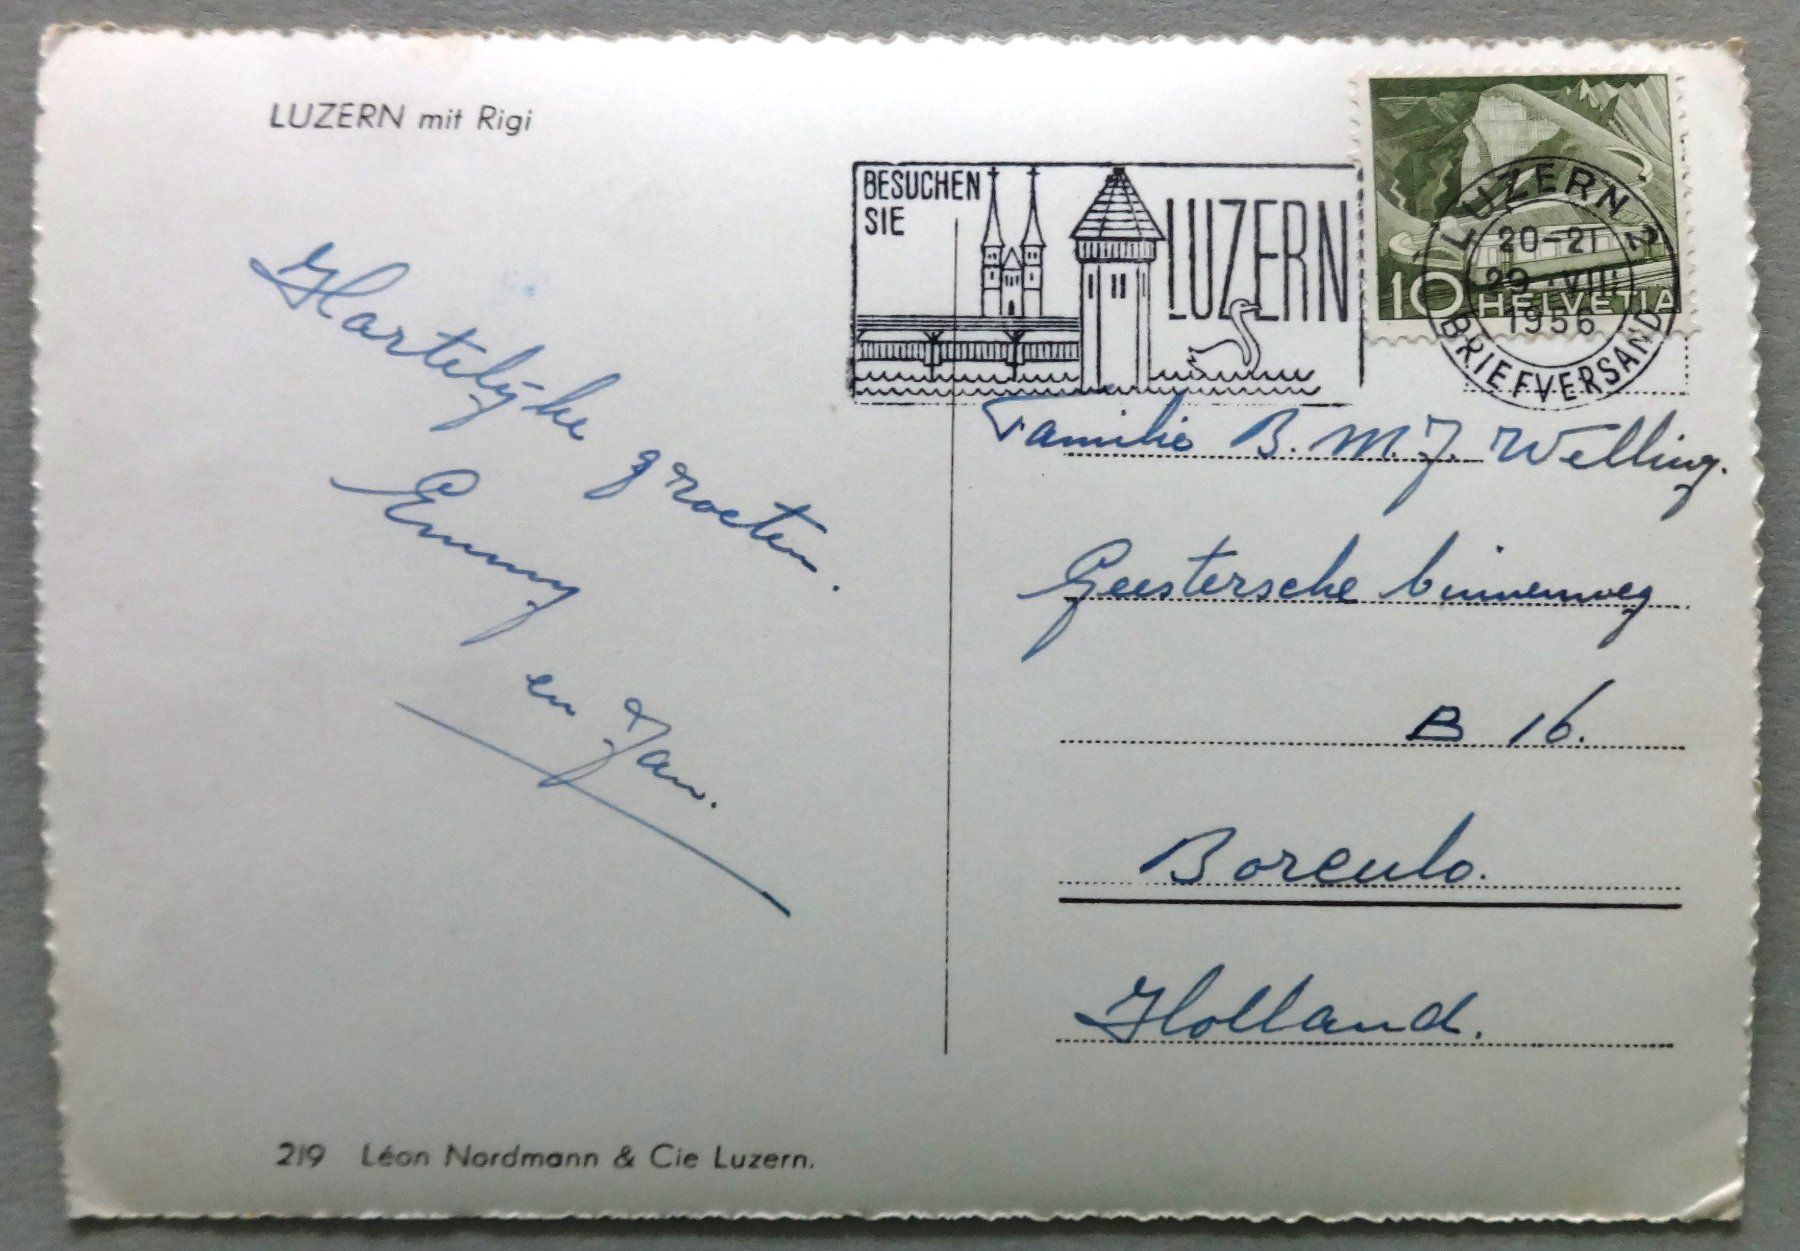 LUZERN mit Rigi
BESUCHEN
SIE
LUZERN
LUZERN 2
20-21
29.VIII
1956
BRIEFVERSAND
10 HELVETIA
Hartelijke groeten
Emmy
en Jan.
Familie B. M. J. Welling.
Geestersche binnenweg
B 16.
Borculo.
Holland.
219 Léon Nordmann & Cie Luzern.